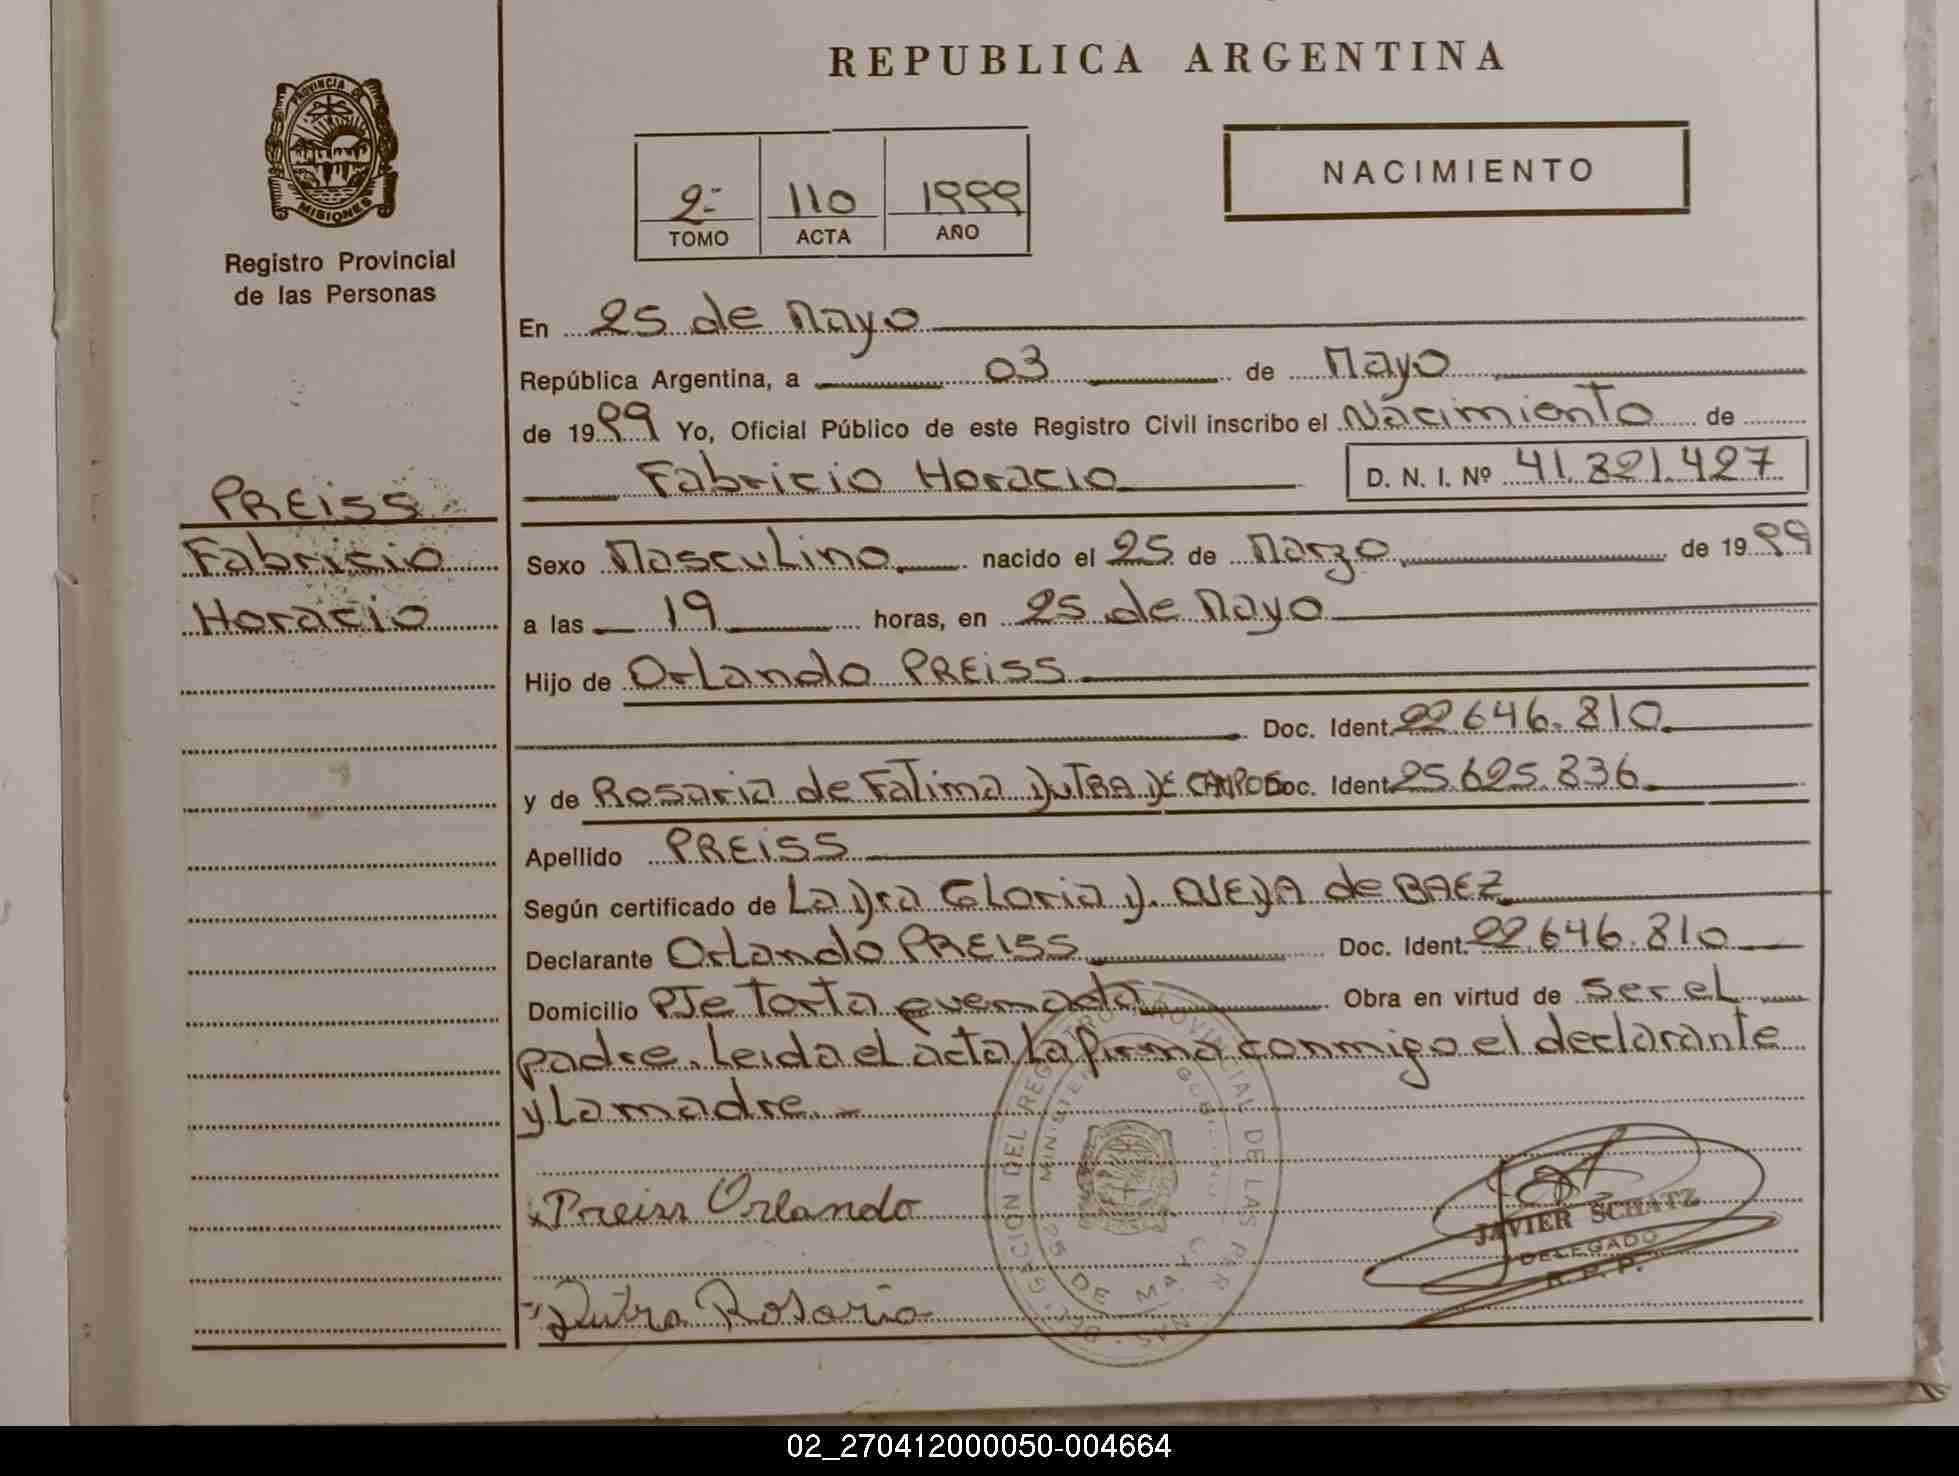 REPUBLICA ARGENTINA
PROVINCIA DE
MISIONES
Registro Provincial
de las Personas
2º 110 1999
TOMO ACTA AÑO
NACIMIENTO
En 25 de Mayo
República Argentina, a 03 de Mayo
de 1999 Yo, Oficial Público de este Registro Civil inscribo el Nacimiento de
Fabricio Horacio D. N. I. Nº 41.821.427
PREISS
Fabricio
Horacio
Sexo Masculino nacido el 25 de Marzo de 1999
a las 19 horas, en 25 de Mayo
Hijo de Orlando PREISS
Doc. Ident. 22.646.810
y de Rosaria de Fatima DUTRA DE CAMPOS Doc. Ident. 25.625.836
Apellido PREISS
Según certificado de La Dra Gloria D. de BAEZ
Declarante Orlando PREISS Doc. Ident. 22.646.810
Domicilio PJe Torta quemada Obra en virtud de ser el
padre. Leida el acta la firma conmigo el declarante
y La madre.-
Preiss Orlando
JAVIER SCHATZ
DELEGADO
R. P. P.
Dutra Rosaria
25 DE MAYO
02_270412000050-004664